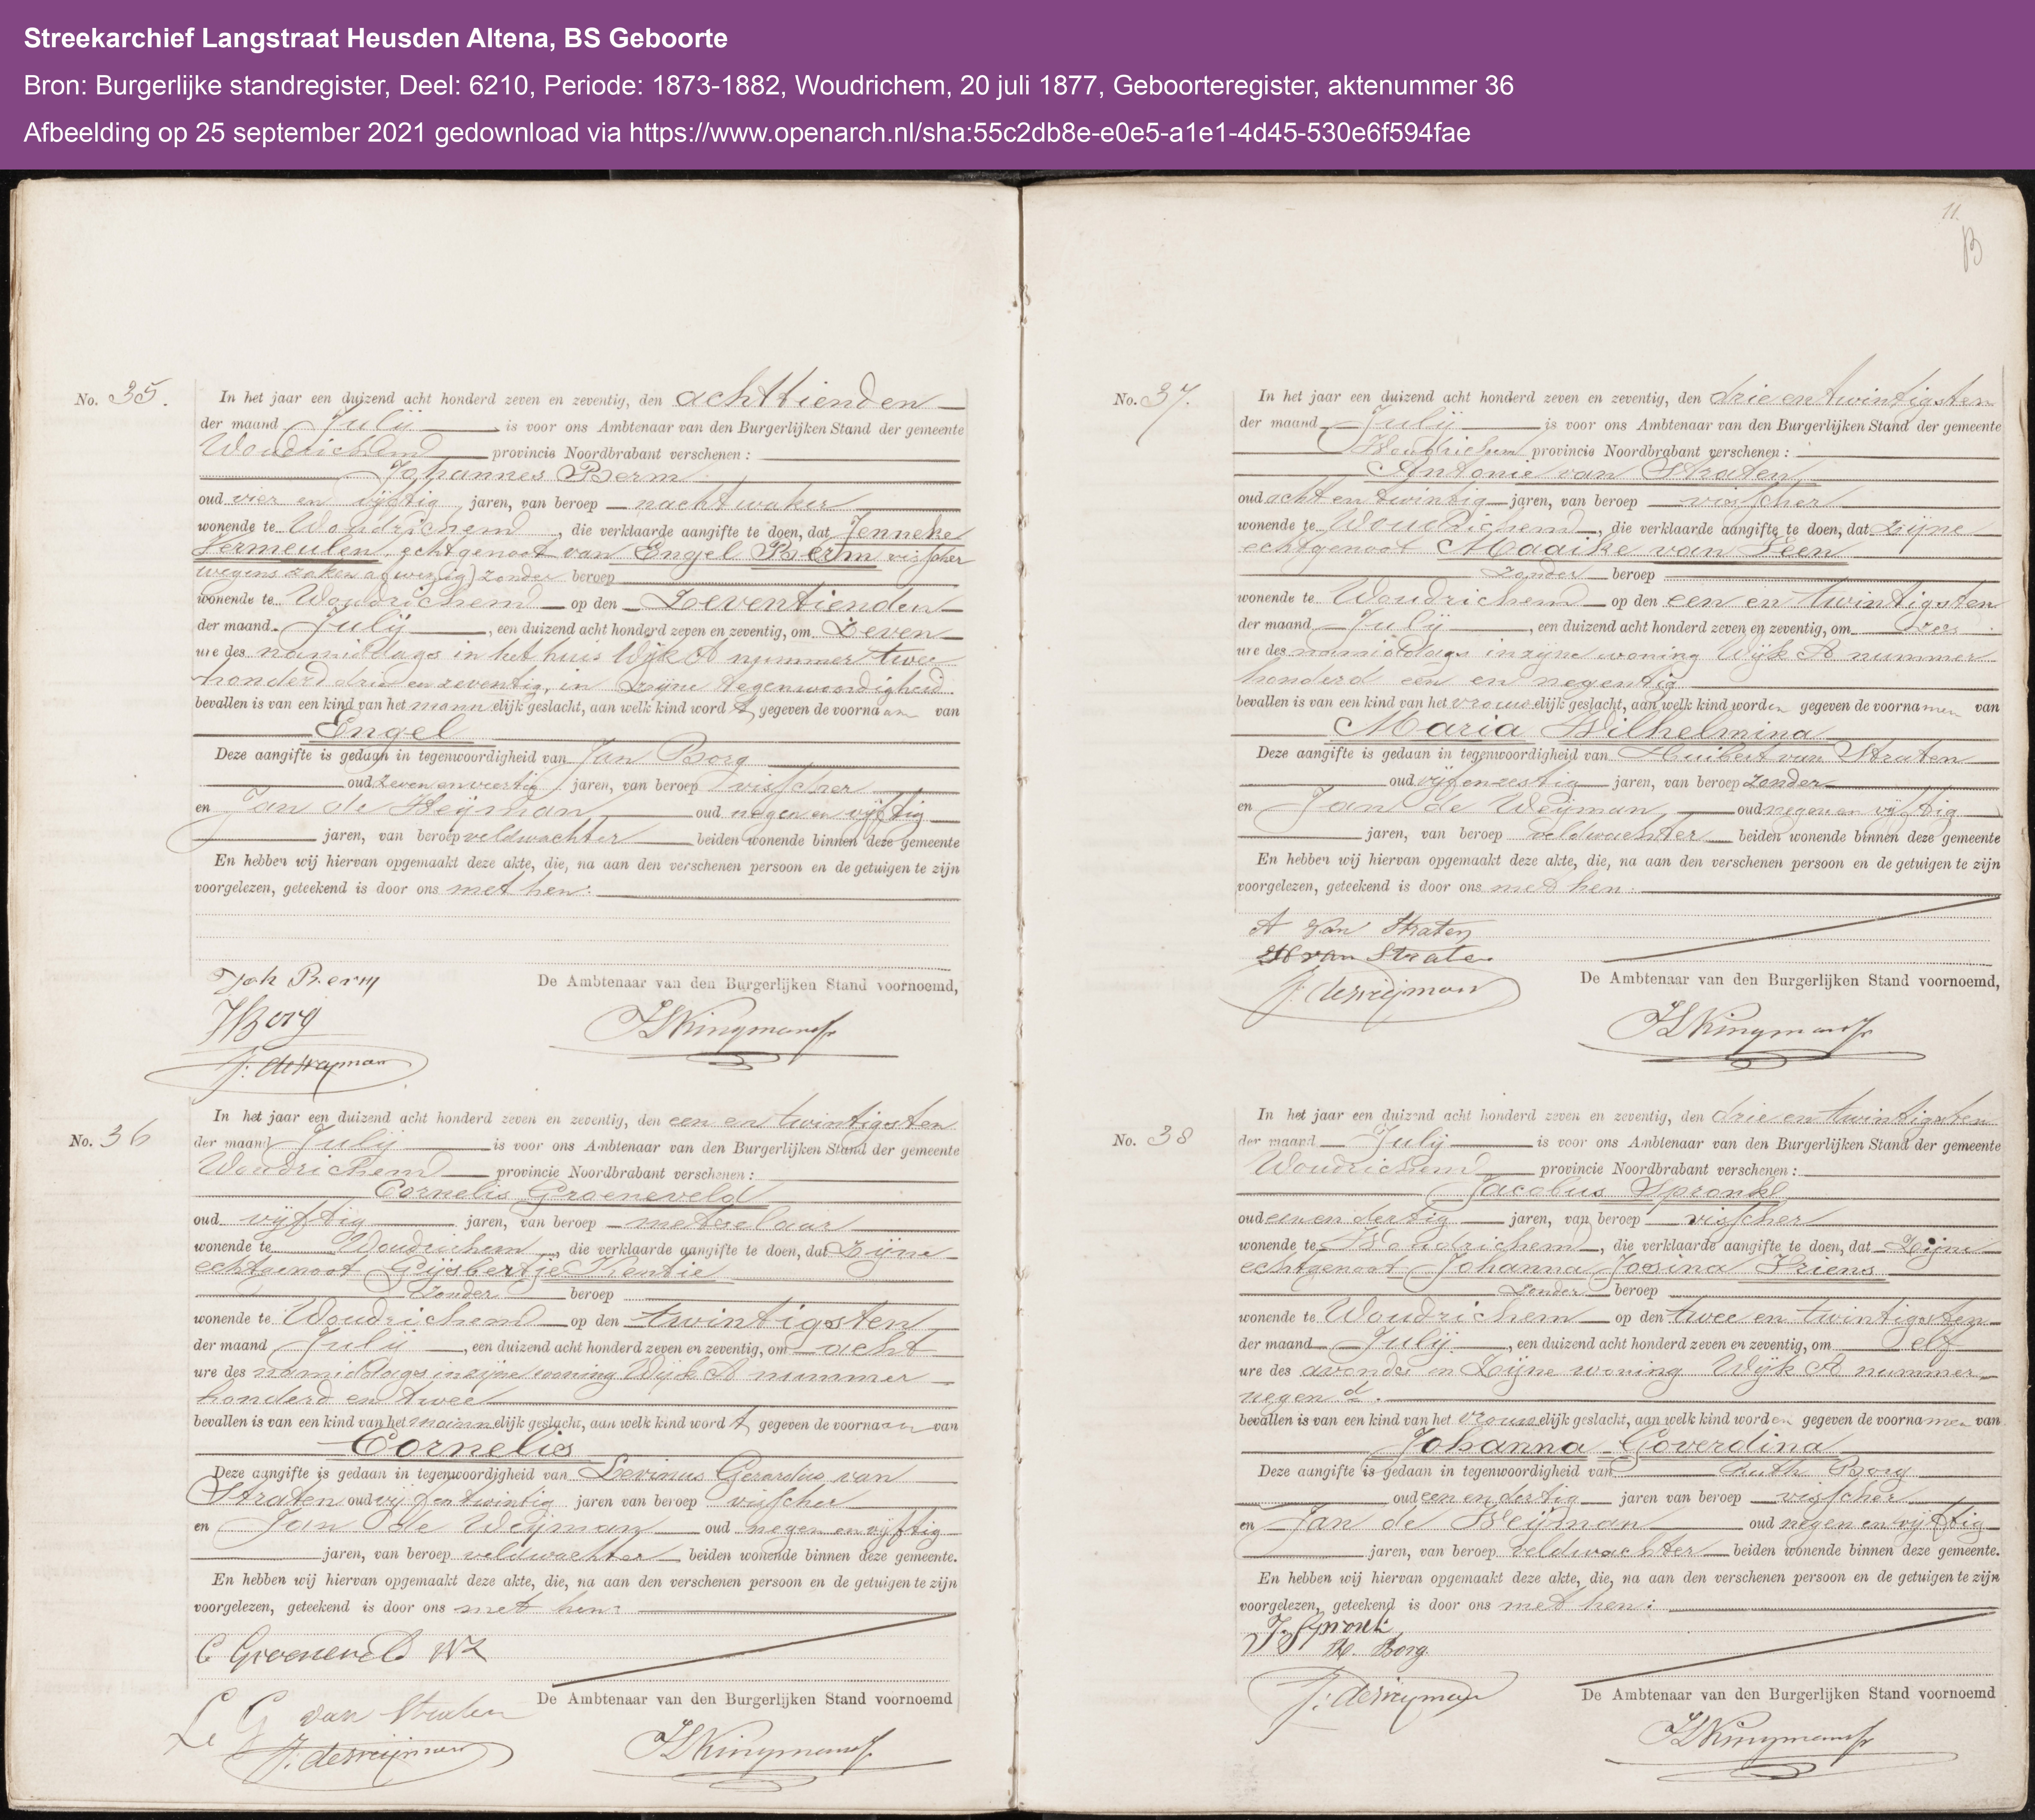 Streekarchief Langstraat Heusden Altena, BS Geboorte
Bron: Burgerlijke standregister, Deel: 6210, Periode: 1873-1882, Woudrichem, 20 juli 1877, Geboorteregister, aktenummer 36
Afbeelding op 25 september 2021 gedownload via https://www.openarch.nl/sha:55c2db8e-e0e5-a1e1-4d45-530e6f594fae
No. 35.
In het jaar een duizend acht honderd zeven en zeventig, den achttienden
der maand Julij is voor ons Ambtenaar van den Burgerlijken Stand der gemeente
Woudrichem provincie Noordbrabant verschenen:
Johannes Berm
oud vier en vijftig jaren, van beroep nachtwaker
wonende te Woudrichem, die verklaarde aangifte te doen, dat Jenneke
Vermeulen, echtgenoot van Engel Berm visscher
wegens zaken afwezig) zonder beroep
wonende te Woudrichem op den Zeventienden
der maand Julij, een duizend acht honderd zeven en zeventig, om Zeven
ure des namiddags in het huis Wijk A nummer twee
honderd drie en zeventig, in zijne tegenwoordigheid
bevallen is van een kind van het mannelijk geslacht, aan welk kind wordt gegeven de voornaam van
Engel
Deze aangifte is gedaan in tegenwoordigheid van Jan Borg
oud zeven en veertig jaren, van beroep visscher
en Jan de Weijman oud negen en vijftig
jaren, van beroep veldwachter beiden wonende binnen deze gemeente
En hebben wij hiervan opgemaakt deze akte, die, na aan den verschenen persoon en de getuigen te zijn
voorgelezen, geteekend is door ons met hen:
Joh Berm
De Ambtenaar van den Burgerlijken Stand voornoemd,
JBorg
J. de Weijman
No. 36
In het jaar een duizend acht honderd zeven en zeventig, den een en twintigsten
der maand Julij is voor ons Ambtenaar van den Burgerlijken Stand der gemeente
Woudrichem provincie Noordbrabant verschenen:
Cornelis Groeneveld
oud vijftig jaren, van beroep metselaar
wonende te Woudrichem, die verklaarde aangifte te doen, dat Zijne
echtgenoot Gijsbertje Kentie
Zonder beroep
wonende te Woudrichem op den twintigsten
der maand Julij, een duizend acht honderd zeven en zeventig, om acht
ure des namiddags in zijne woning Wijk A nummer
honderd en twee
bevallen is van een kind van het mannelijk geslacht, aan welk kind wordt gegeven de voornaam van
Cornelis
Deze aangifte is gedaan in tegenwoordigheid van Levinus Gerardus van
Straten oud vijf en twintig jaren van beroep visscher
en Jan de Weijman oud negen en vijftig
jaren, van beroep veldwachter beiden wonende binnen deze gemeente.
En hebben wij hiervan opgemaakt deze akte, die, na aan den verschenen persoon en de getuigen te zijn
voorgelezen, geteekend is door ons met hen:
C Groeneveld WZ
De Ambtenaar van den Burgerlijken Stand voornoemd
Le G van Straten
J. de Weijman
11.
B
No. 37.
In het jaar een duizend acht honderd zeven en zeventig, den drie en twintigsten
der maand Julij is voor ons Ambtenaar van den Burgerlijken Stand der gemeente
Woudrichem provincie Noordbrabant verschenen:
Antonie van Straten
oud acht en twintig jaren, van beroep visscher
wonende te Woudrichem, die verklaarde aangifte te doen, dat zijne
echtgenoot Maaike van Seen
zonder beroep
wonende te Woudrichem op den een en twintigsten
der maand Julij, een duizend acht honderd zeven en zeventig, om
ure des namiddags in zijne woning Wijk A nummer
honderd een en negentig
bevallen is van een kind van het vrouwelijk geslacht, aan welk kind worden gegeven de voornamen van
Maria Wilhelmina
Deze aangifte is gedaan in tegenwoordigheid van Huibert van Straten
oud vijf en zestig jaren, van beroep zonder
en Jan de Weijman oud negen en vijftig
jaren, van beroep veldwachter beiden wonende binnen deze gemeente
En hebben wij hiervan opgemaakt deze akte, die, na aan den verschenen persoon en de getuigen te zijn
voorgelezen, geteekend is door ons met hen:
A van Straten
H van Straten
De Ambtenaar van den Burgerlijken Stand voornoemd,
J. de Weijman
No. 38
In het jaar een duizend acht honderd zeven en zeventig, den drie en twintigsten
der maand Julij is voor ons Ambtenaar van den Burgerlijken Stand der gemeente
Woudrichem provincie Noordbrabant verschenen:
Jacobus Spronk
oud een en dertig jaren, van beroep visscher
wonende te Woudrichem, die verklaarde aangifte te doen, dat Zijne
echtgenoot Johanna Josina Friens
Zonder beroep
wonende te Woudrichem op den twee en twintigsten
der maand Julij, een duizend acht honderd zeven en zeventig, om elf
ure des avonds in Zijne woning Wijk A nummer
negen
bevallen is van een kind van het vrouwelijk geslacht, aan welk kind worden gegeven de voornamen van
Johanna Goverdina
Deze aangifte is gedaan in tegenwoordigheid van Ruth Borg
oud een en dertig jaren van beroep visscher
en Jan de Weijman oud negen en vijftig
jaren, van beroep veldwachter beiden wonende binnen deze gemeente.
En hebben wij hiervan opgemaakt deze akte, die, na aan den verschenen persoon en de getuigen te zijn
voorgelezen, geteekend is door ons met hen:
J. Spronk
R. Borg
De Ambtenaar van den Burgerlijken Stand voornoemd
J. de Weijman